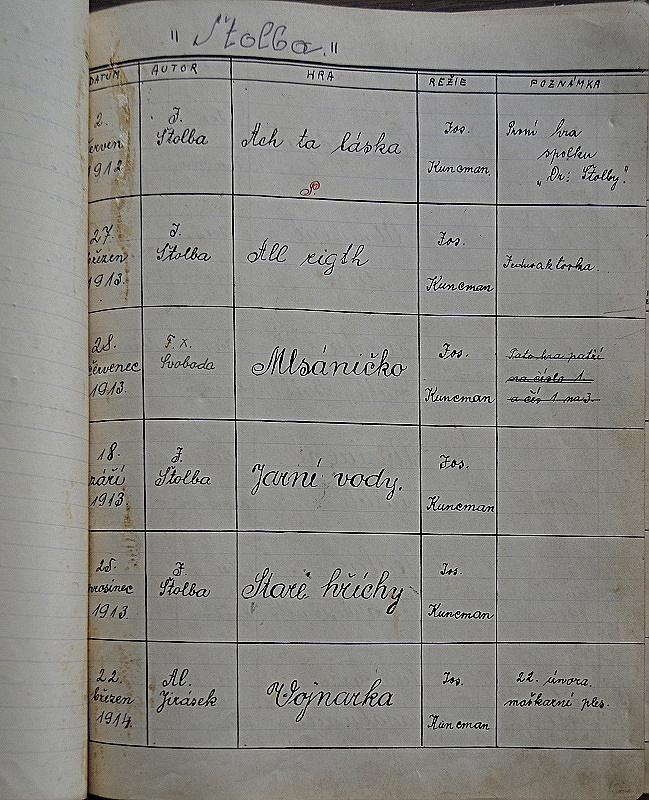 " Štolba."
DATUM AUTOR HRA REŽIE POZNÁMKA
2.
červen
1912
J.
Štolba
Ach ta láska
P.
Jos.
Kuncman.
První hra
spolku
„Dr: Štolby."
27.
březen
1913.
J.
Štolba
All rigth
Jos.
Kuncman
Jednoaktovka.
28.
červenec
1913.
F. X.
Svoboda
Mlsáničko
Jos.
Kuncman
Tato hra patří
na číslo 1.
a čís 1 na 3.
18.
září
1913.
J.
Štolba
Jarní vody.
Jos.
Kuncman
25.
prosinec
1913.
J.
Štolba
Staré hříchy
Jos.
Kuncman
22.
březen
1914.
Al.
Jirásek
Vojnarka
Jos.
Kuncman
22. února.
maškarní ples.